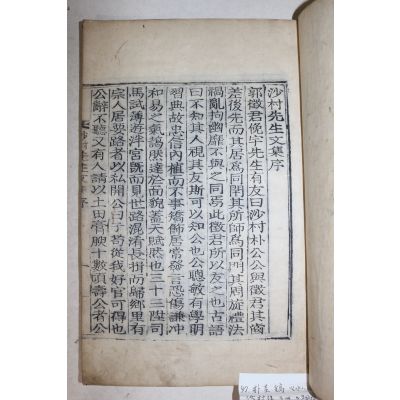 沙村先生文集序
郭徵君俛宇先生有友曰沙村朴公公與徵君其齒
差後先而其居爲同閈其所師爲同門其周旋禮法
禍亂拘幽靡不與之同焉此徵君所以友之也古語
曰不知其人視其友斯可以知公也公聰敏有學明
習典故忠信內植而不事矯飾居常發言恐傷謙冲
和易之氣藹然達於面貌蓋天賦然也三十三陞司
馬試薄遊泮宮旣而見世路混淆長揖而歸鄕里有
宗人居要路者以私開公曰子苟從我好官可得也
公辭不聽又有人請以土田膏腴十數頃壽公者公
沙村先生文集序